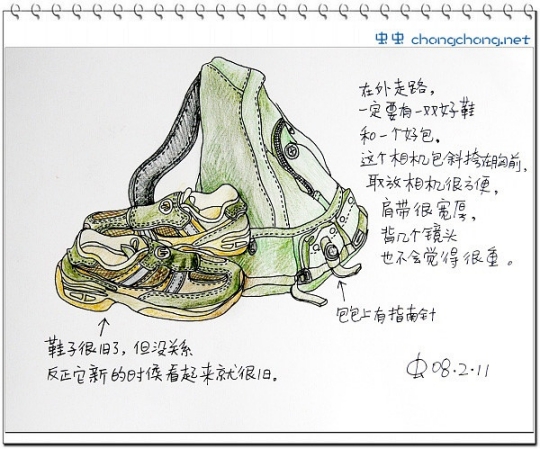 虫虫 chongchong.net
在外走路，
一定要有一双好鞋
和一个好包。
这个相机包斜挎在胸前，
取放相机很方便，
肩带很宽厚，
背几个镜头
也不会觉得很重。
包包上有指南针
鞋子很旧了，但没关系
反正它新的时候看起来就很旧。
虫08.2.11